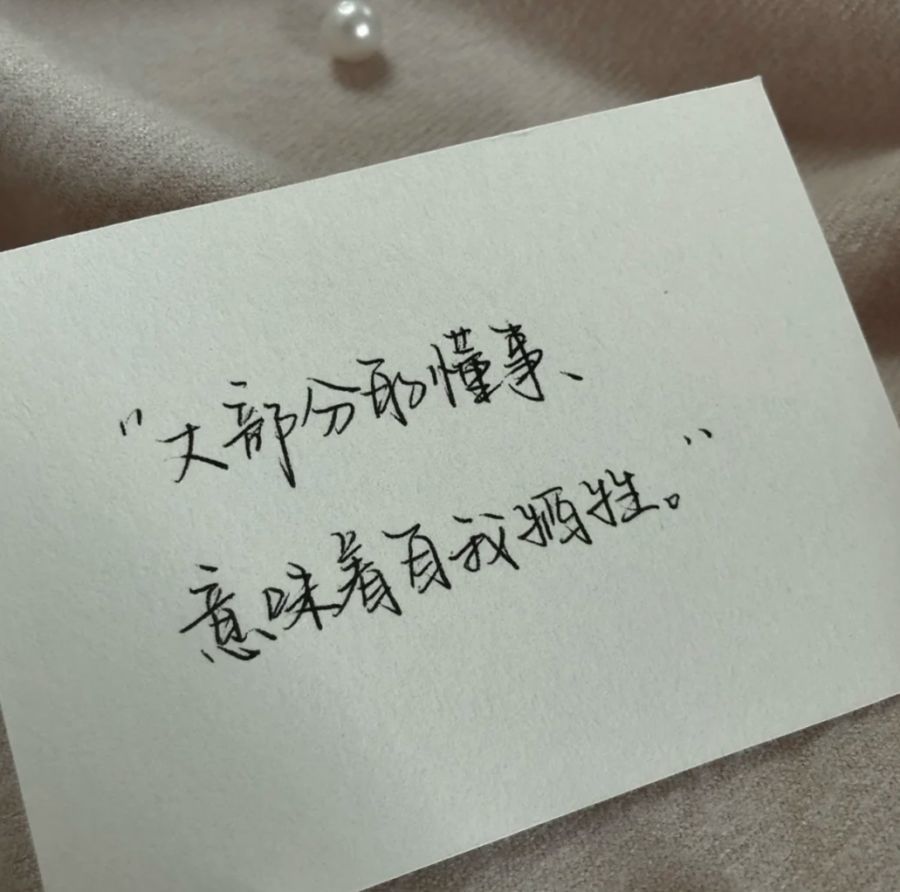 "大部分的懂事、
意味着自我牺牲。"